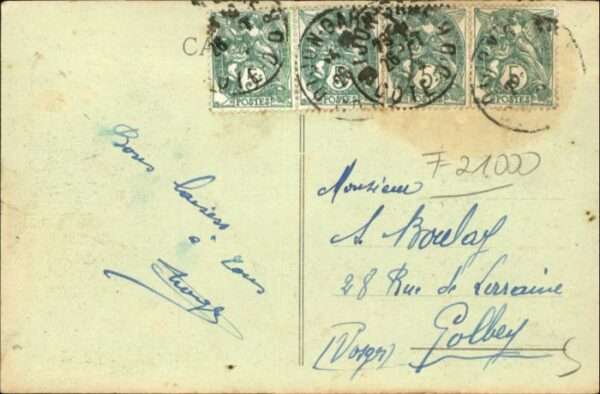 CA
DIJON-GARE
COTE D'OR
5
POSTES
5
POSTES
5
POSTES
5
POSTES
Bons baisers
à tous
F 21000
Monsieur
A. Boulay
28 Rue de Lorraine
Golbey
(Vosges)